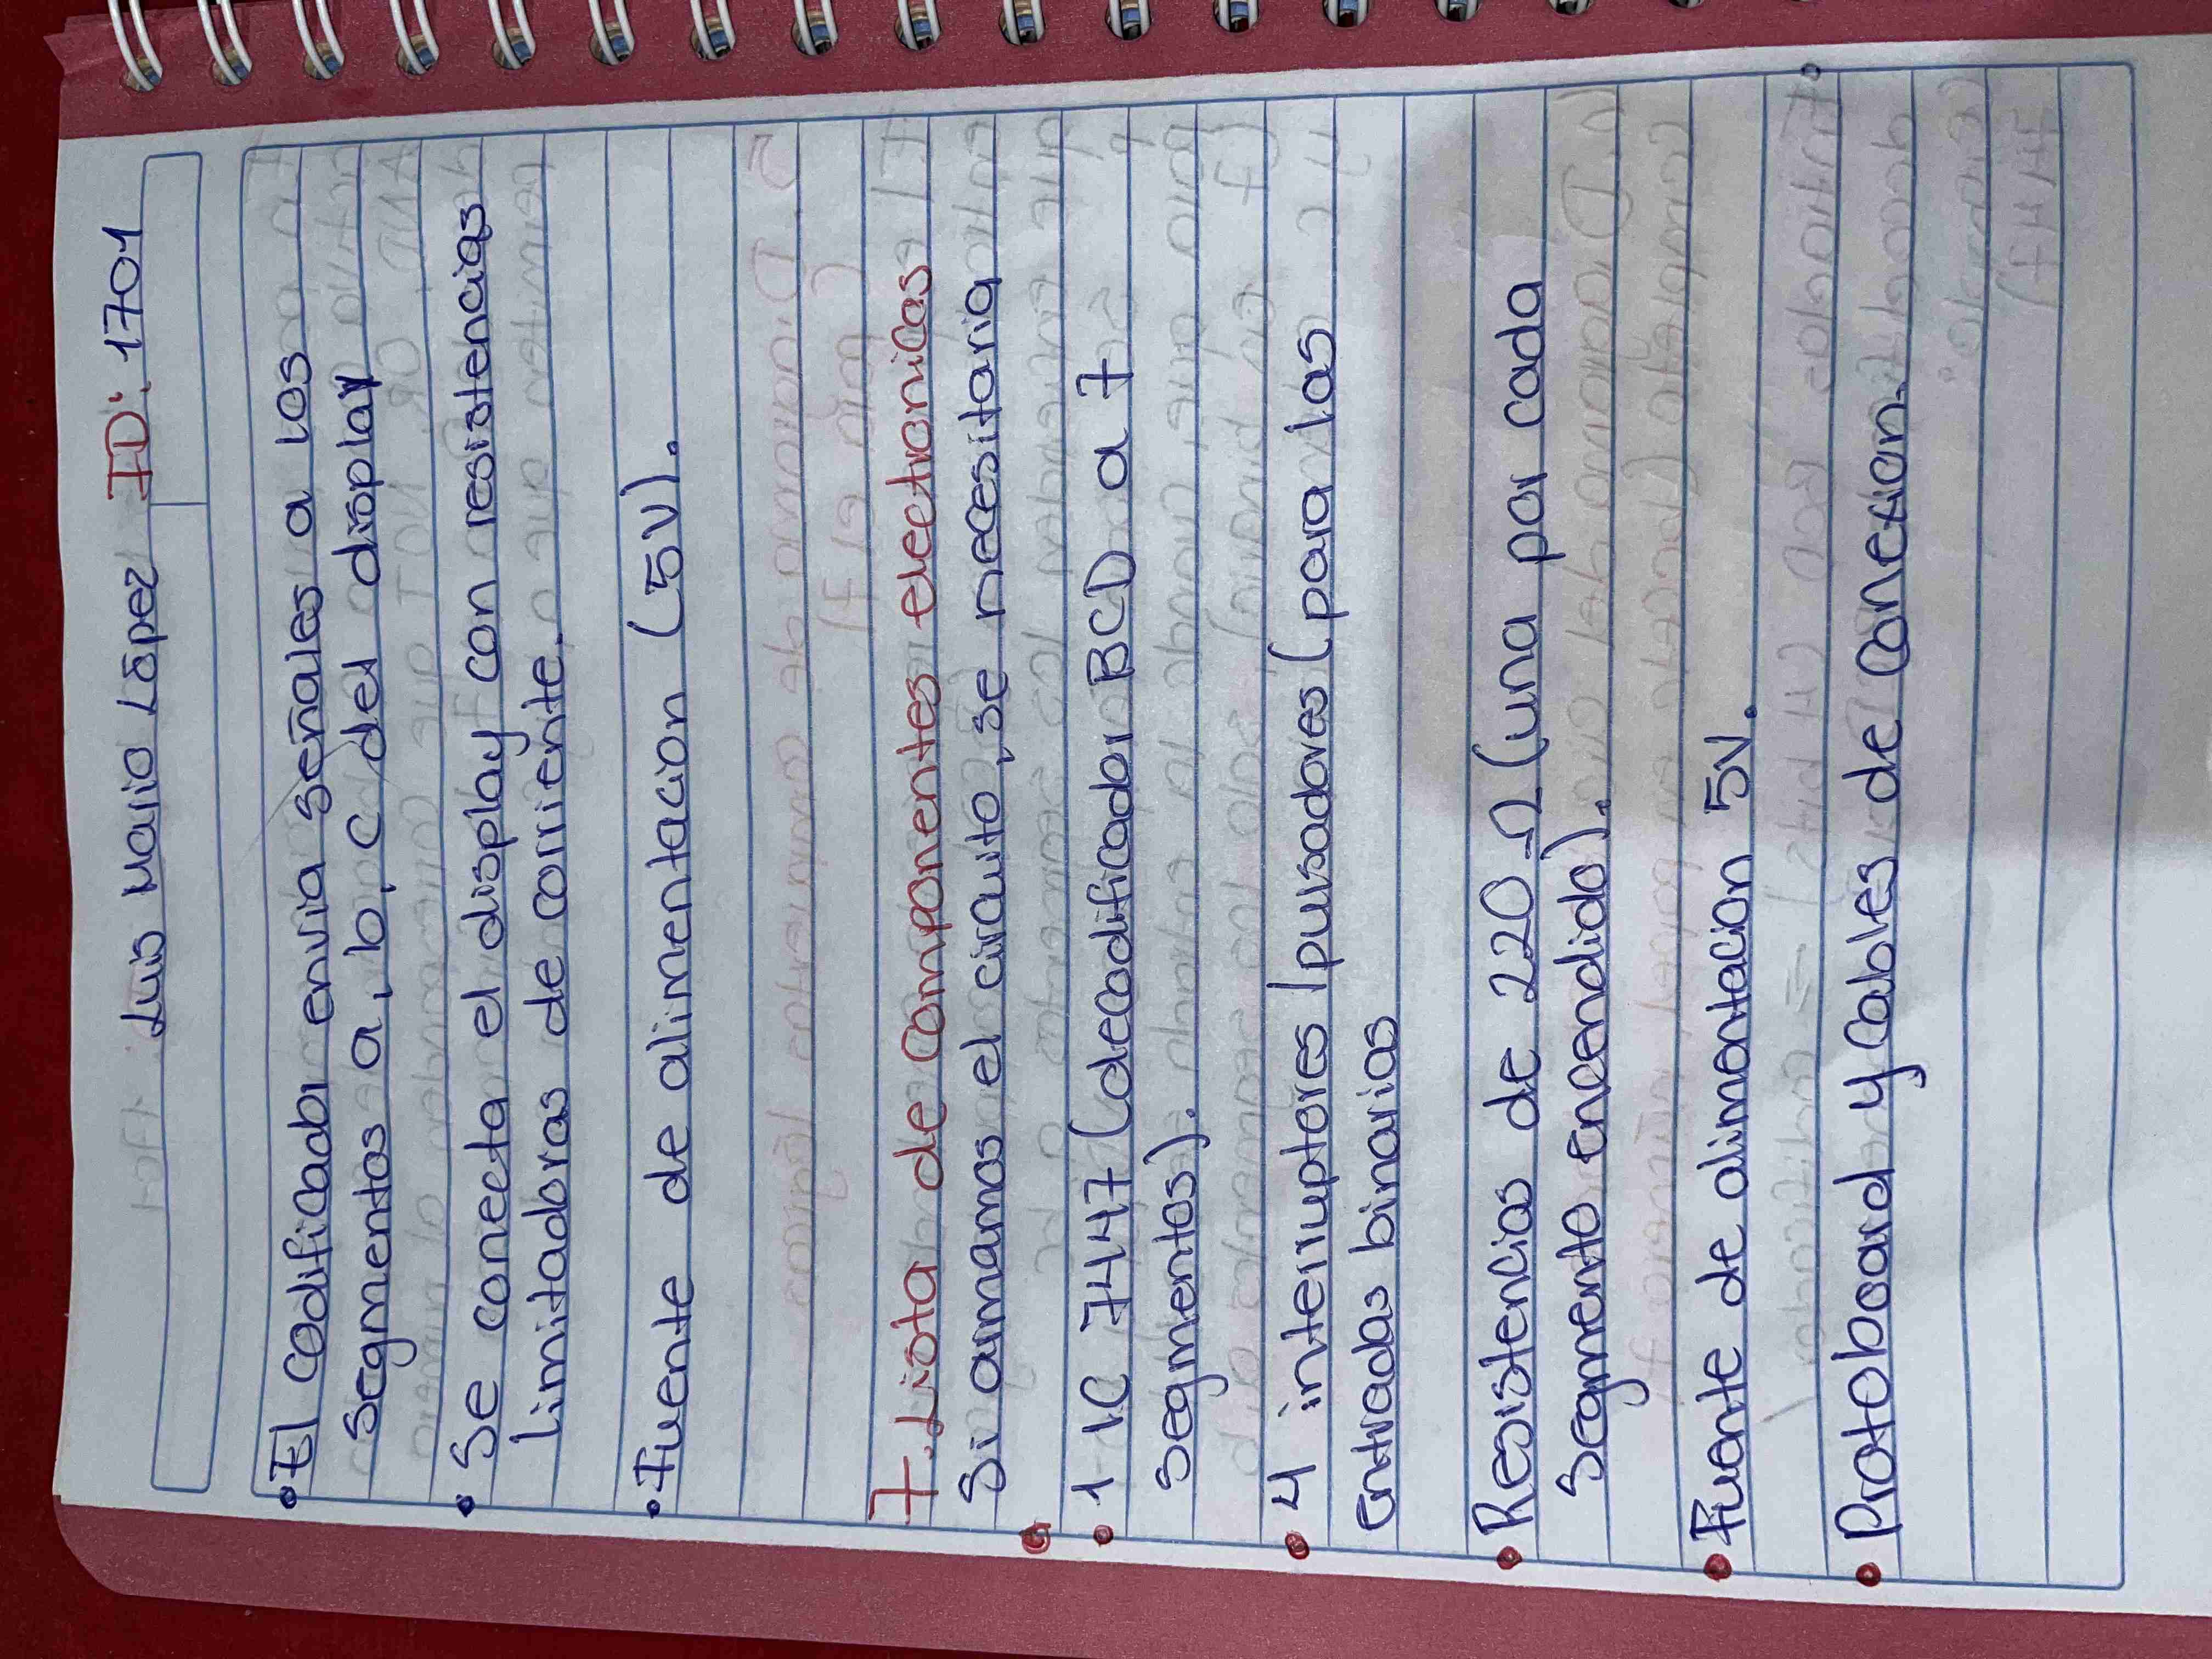 Luis Mario López ID: 1701
• El codificador envia señales a los
segmentos a, b, c del display
• Se conecta el display con resistencias
limitadoras de corriente.
• Fuente de alimentacion (5V).
7. Lista de componentes electronicos
Si armamos el circuito, se necesitaria
• 1 IC 7447 (decodificador BCD a 7
segmentos).
• 4 interruptores / pulsadores (para las
entradas binarias
• Resistencias de 220 Ω (una por cada
segmento encendido).
• Fuente de alimentacion 5V.
• Protoboard y cables de conexion.